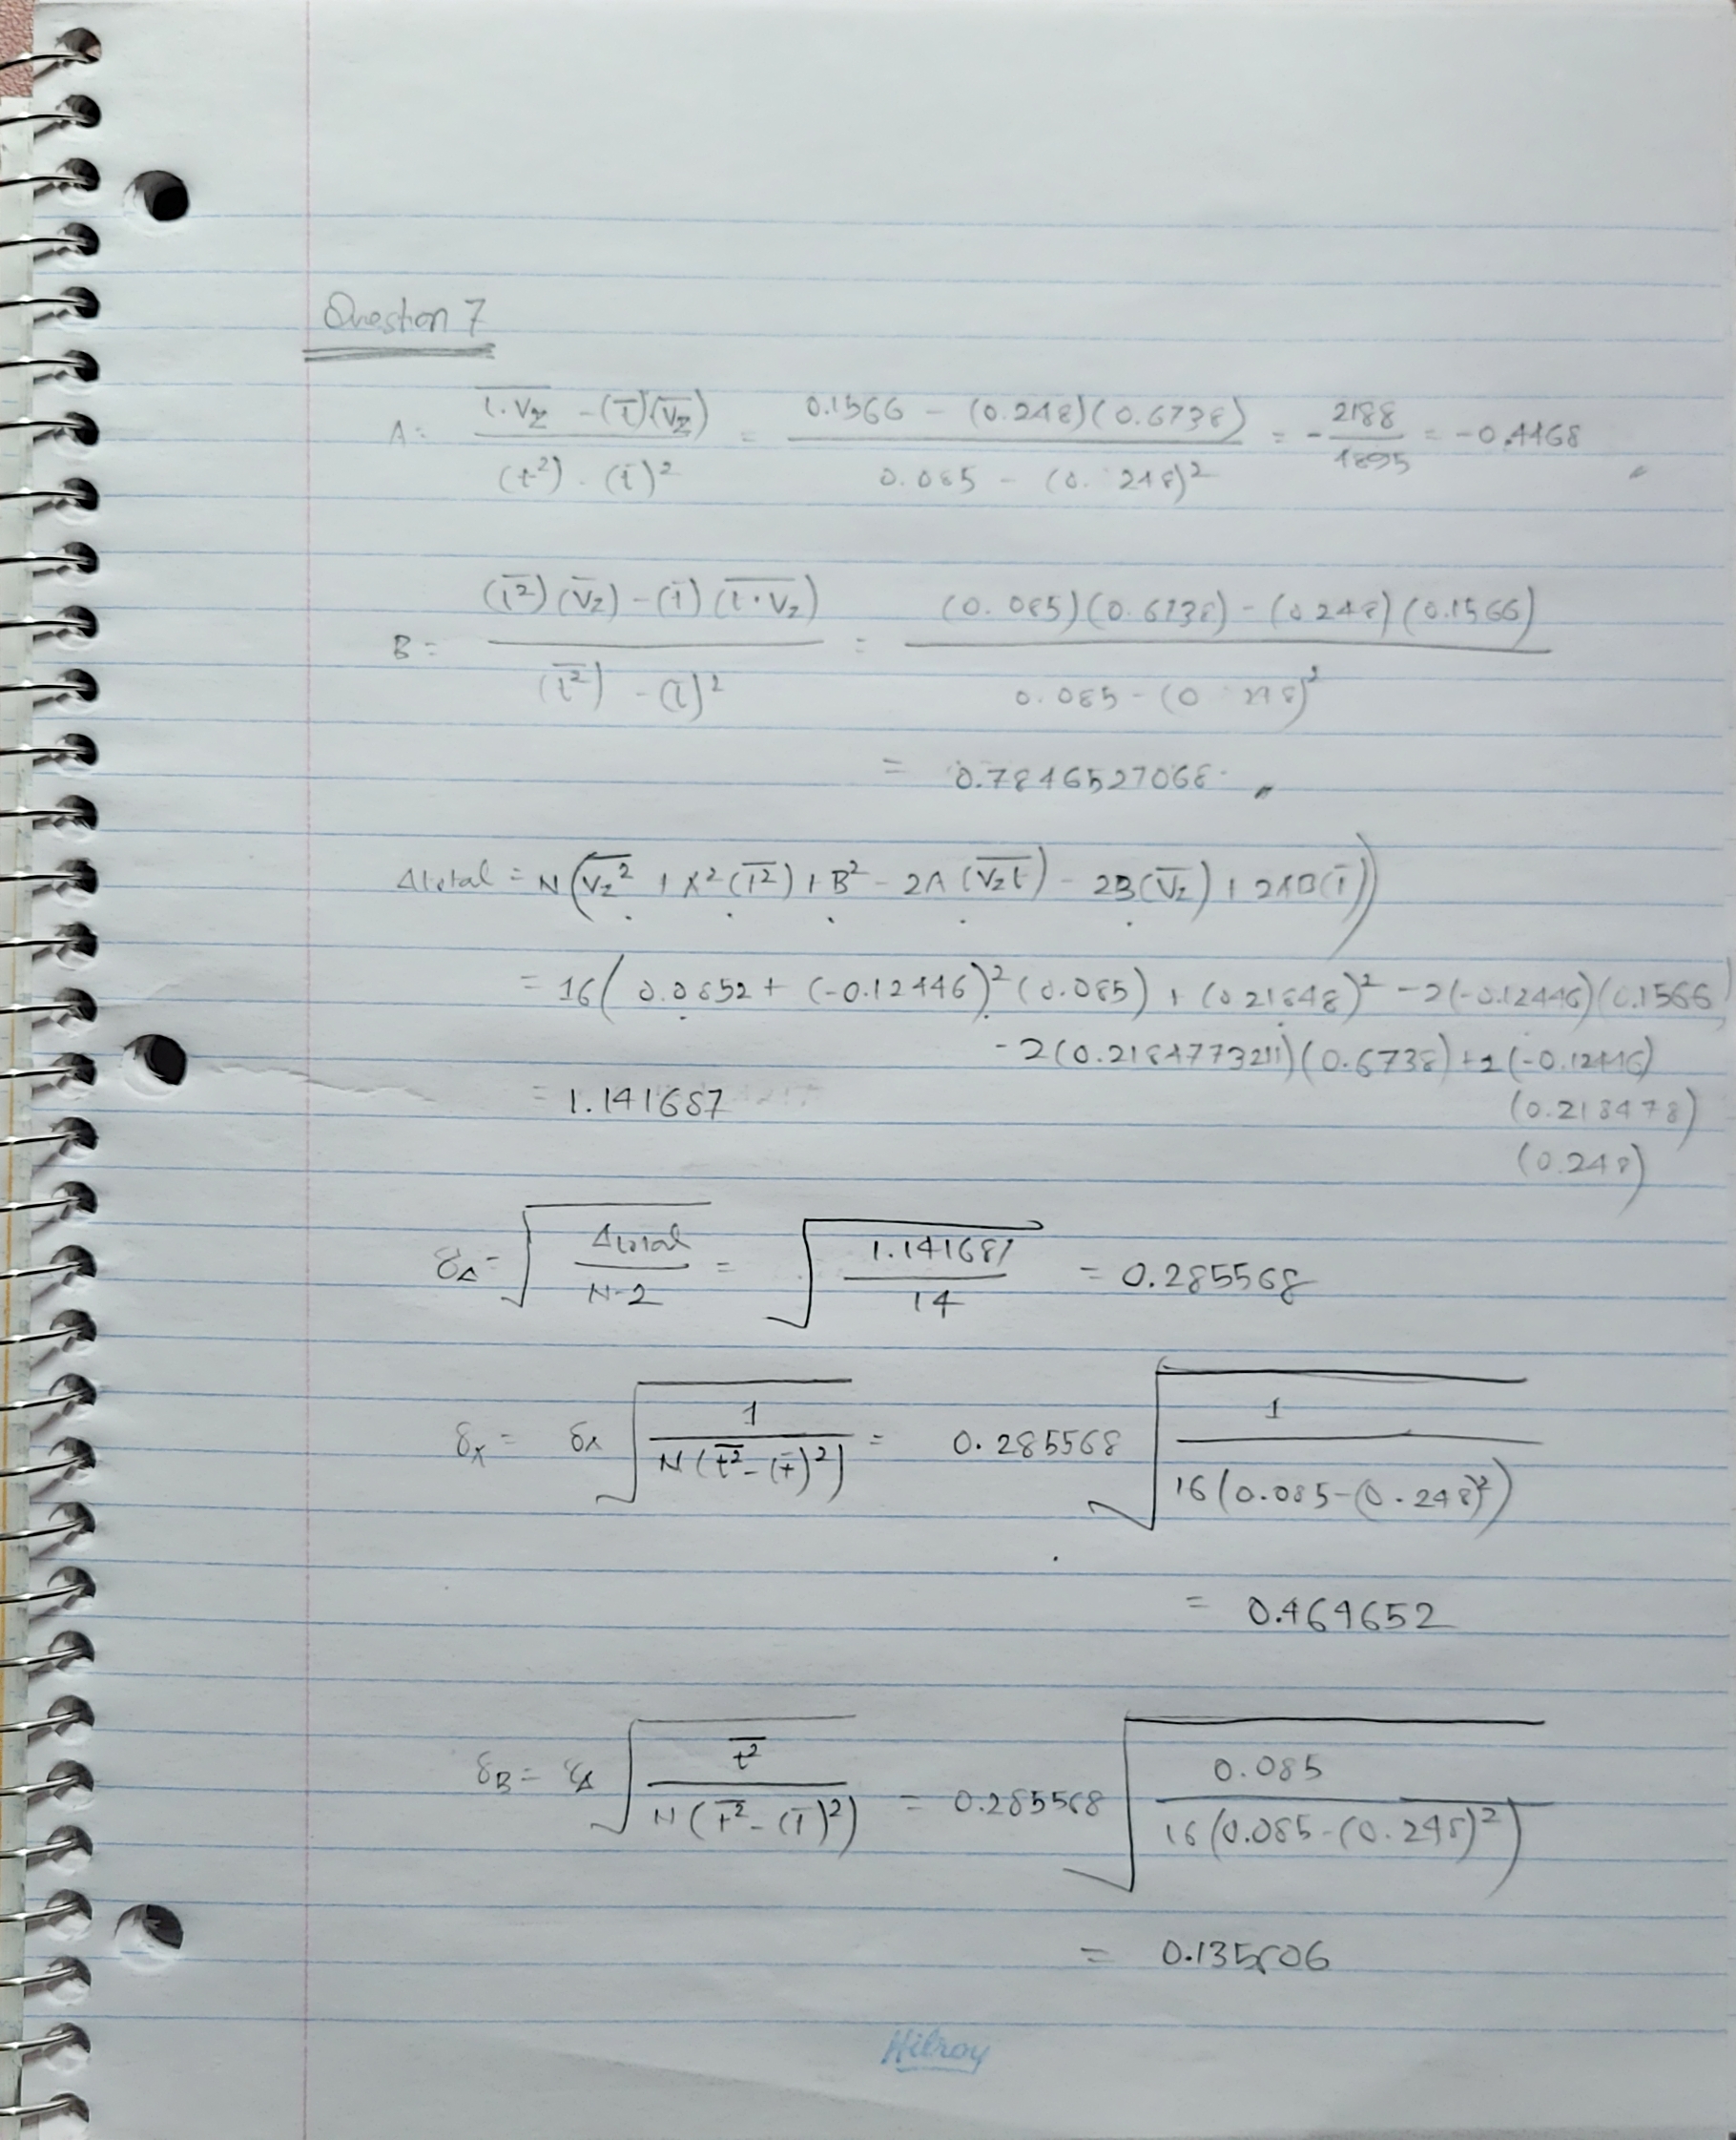 Question 7
A = (t̄·V̄z - (t̄)(V̄z)) / ((t²) - (t̄)²) = (0.1566 - (0.248)(0.6738)) / (0.085 - (0.248)²) = -2188/4895 = -0.4468
B = ((t̄²)(V̄z) - (t̄)(t·Vz)) / ((t̄²) - (t̄)²) = ((0.085)(0.6738) - (0.248)(0.1566)) / (0.085 - (0.248)²)
= 0.7846527068
Δtotal = N(Vz² + A²(t²) + B² - 2A(Vzt) - 2B(V̄z) + 2AB(t̄))
= 16(0.0852 + (-0.12446)²(0.085) + (0.21848)² - 2(-0.12446)(0.1566)
- 2(0.2184773211)(0.6738) + 2(-0.12446)
(0.218478)
(0.248)
= 1.141687
δΔ = √(Δtotal / N-2) = √(1.141687 / 14) = 0.285568
δA = δΔ √(1 / N(t̄² - (t̄)²)) = 0.285568 √(1 / 16(0.085-(0.248)²))
= 0.464652
δB = δΔ √(t̄² / N(t̄² - (t̄)²)) = 0.285568 √(0.085 / 16(0.085-(0.248)²))
= 0.135606
Hilroy